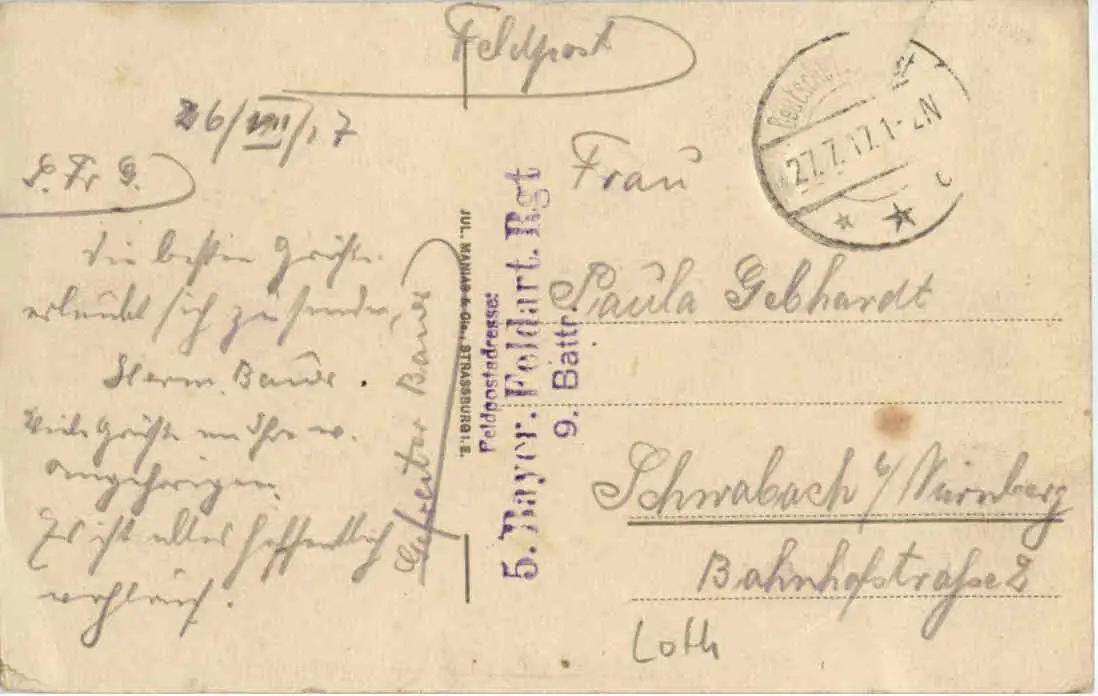 Feldpost
26/VII/17
L. Fr. G.
Die besten Grüße
erlaubt sich zu senden,
Herm. Bauer.
Viele Grüße an Ihre w.
Angehörigen.
Es ist alles hoffentlich
wohlauf.
Gefreiter Bauer
JUL. MANIAS & Cie., STRASSBURG i. E.
Feldpostadresse:
5. Bayer. Feldart. Rgt
9. Battr.
27.7.17. 1-2N
Frau
Paula Gebhardt
Schwabach b/Nürnberg
Bahnhofstrasse 2
Loth